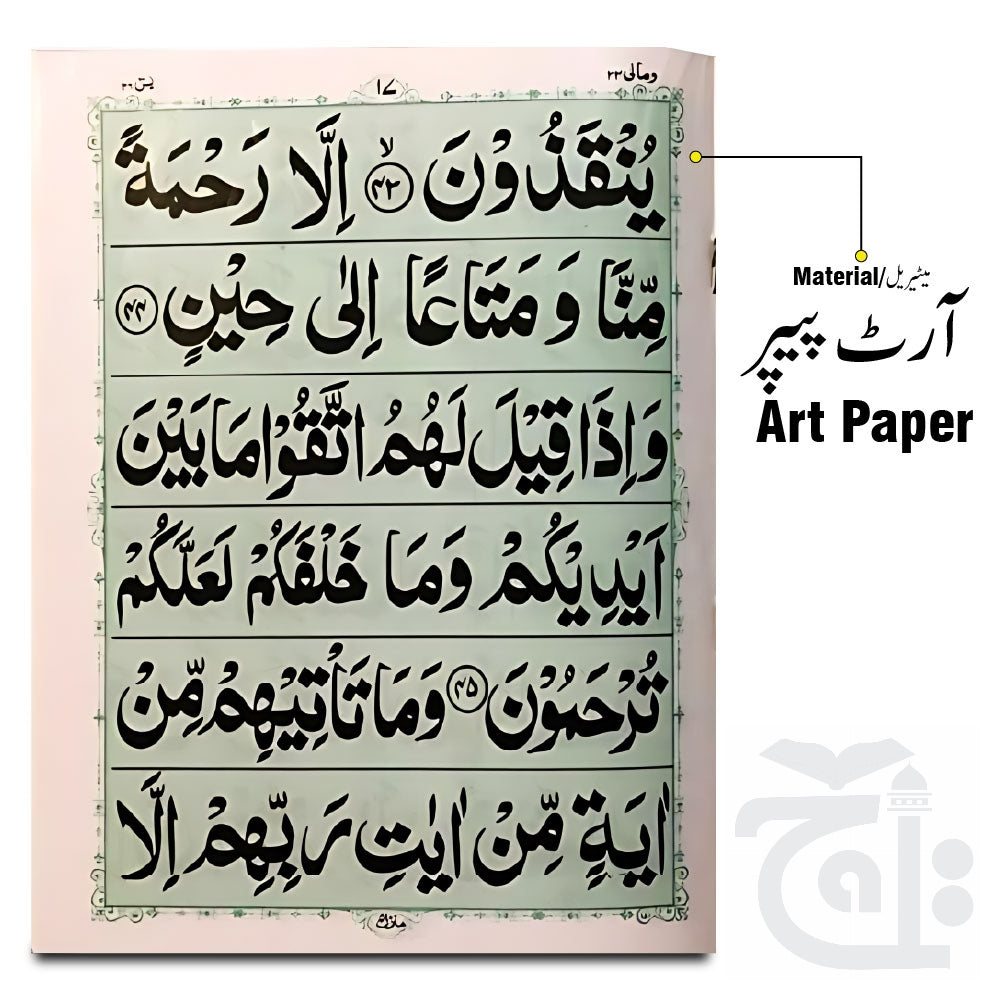 یٰسٓ ٣٦ ١٧ ومالی ٢٣
يُنْقَذُوْنَ ﴿٤٣﴾ ۙ اِلَّا رَحْمَةً
مِّنَّا وَ مَتَاعًا اِلٰى حِيْنٍ ﴿٤٤﴾
وَ اِذَا قِيْلَ لَهُمُ اتَّقُوْا مَا بَيْنَ
اَيْدِيْكُمْ وَ مَا خَلْفَكُمْ لَعَلَّكُمْ
تُرْحَمُوْنَ ﴿٤٥﴾ وَ مَا تَاْتِيْهِمْ مِّنْ
اٰيَةٍ مِّنْ اٰيٰتِ رَبِّهِمْ اِلَّا
Material/میٹیریل
آرٹ پیپر
Art Paper
تاج